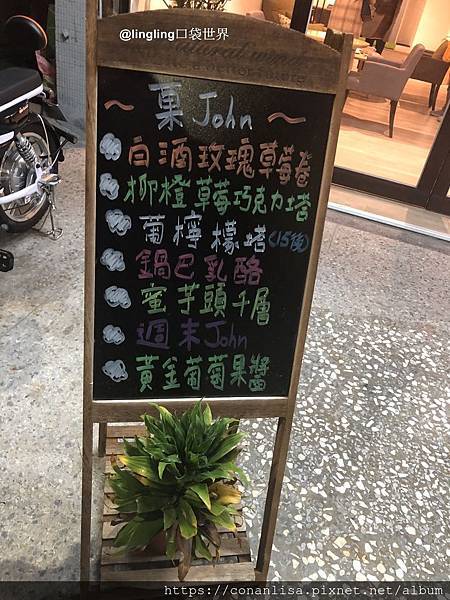 @lingling口袋世界
~ 栗John ~
白酒玫瑰草莓卷
柳橙草莓巧克力塔
葡檸檬塔(15後)
鍋巴乳酪
蜜芋頭千層
週末John
黃金葡萄果醬
https://conanlisa.pixnet.net/album